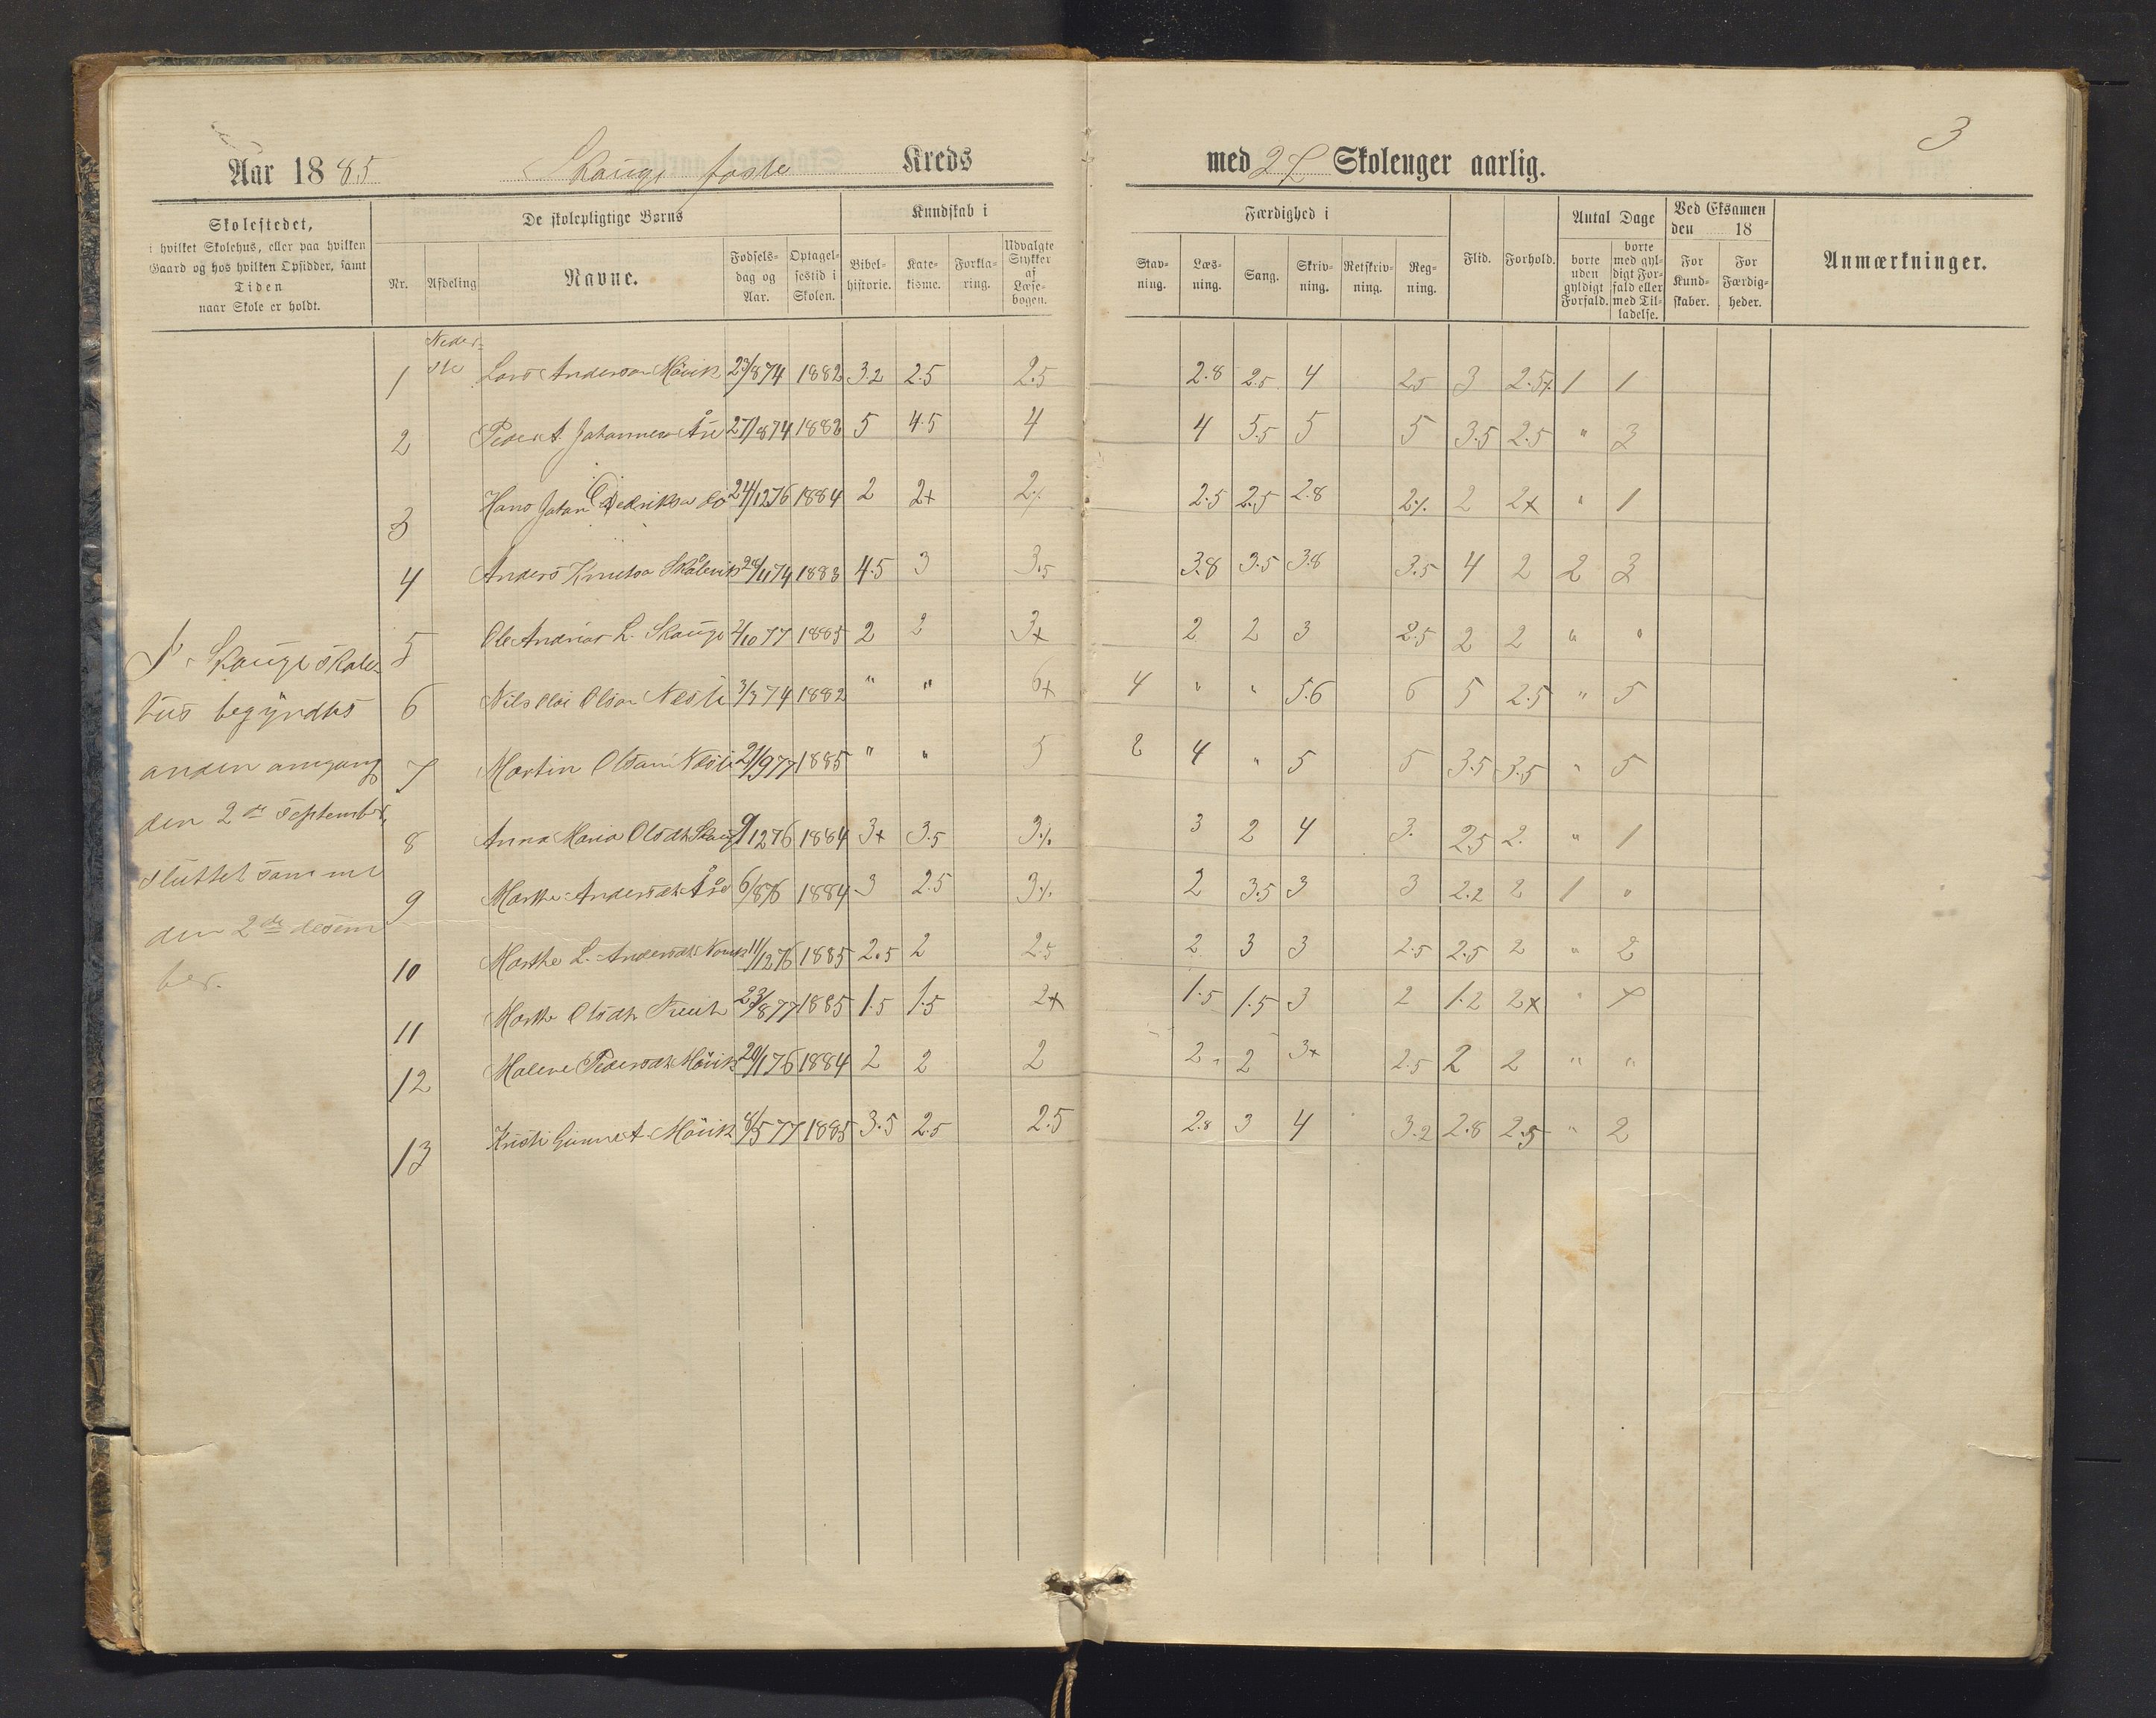 3
Aar 1885 Skauge faste Kreds med 27 Skolenger aarlig.
Skolestedet,
i hvilket Skolehus, eller paa hvilken
Gaard og hos hvilken Opsidder, samt
Tiden
naar Skole er holdt.
De skolepligtige Børns
Nr. Afdeling Navne. Fødsels-dag og Aar. Optagel-sestid i Skolen.
Kundskab i
Bibel-historie. Kate-kisme. Forkla-ring. Udvalgte Stykker af Læse-bogen.
Færdighed i
Stav-ning. Læs-ning. Sang. Skriv-ning. Retskriv-ning. Reg-ning.
Flid. Forhold.
Antal Dage
borte uden gyldigt Forfald. borte med gyl-digt For-fald eller med Til-ladelse.
Ved Eksamen
den 18
For Kund-skaber. For Færdig-heder.
Anmærkninger.
Neder-
ste
1 Lars Anderson Mövik 23/8 74 1882 3.2 2.5 2.5 2.8 2.5 4 2.5 3 2.5% 1 1
2 Peder A. Johannes Åse 27/8 74 1882 5 4.5 4 4 3.5 5 5 3.5 2.5 " 3
3 Hans Johan Dedriksa do 24/12 76 1884 2 2+ 2% 2.5 2.5 2.8 2% 2 2+ " 1
4 Anders Knutsa Skålevik 28/11 74 1883 4.5 3 3.5 3.8 3.5 3.8 3.5 4 2 2 3
5 Ole Andrias L. Skauge 2/10 77 1885 2 2 3+ 2 2 3 2.5 2 2 " "
6 Nils Olai Olson Nesse 3/3 74 1882 " " 6+ 4 " " 5.6 6 5 2.5 " 5
7 Martin Olson 21/9 77 1885 " " 5 2 4 " 5 5 3.5 3.5 " 5
8 Anna Maria Olsdtr Skauge 9/12 76 1884 3+ 3.5 3% 3 2 4 3. 2.5 2. " 1
9 Marthe Andersdtr Åse 6/8 76 1884 3 2.5 3% 2 3.5 3 3 2.2 2 1 "
10 Marthe L. Andersdtr 11/12 76 1885 2.5 2 2.5 2 3 3 2.5 2.5 2 " 2
11 Marthe Olsdtr 23/8 77 1885 1.5 1.5 2+ 1.5 1.5 3 2 1.2 2+ " 7
12 Malene Pedersdtr Mövik 20/1 76 1884 2 2 2 2 2 3+ 2.5 2 2 " "
13 Kristi Gunne A. Mövik 8/5 77 1885 3.5 2.5 2.5 2.8 3 4 3.2 2.8 2.5 " 2
I Skauge skole-
hus begyndtes
anden omgang
den 2de september,
sluttet samme
den 2de desem
ber.